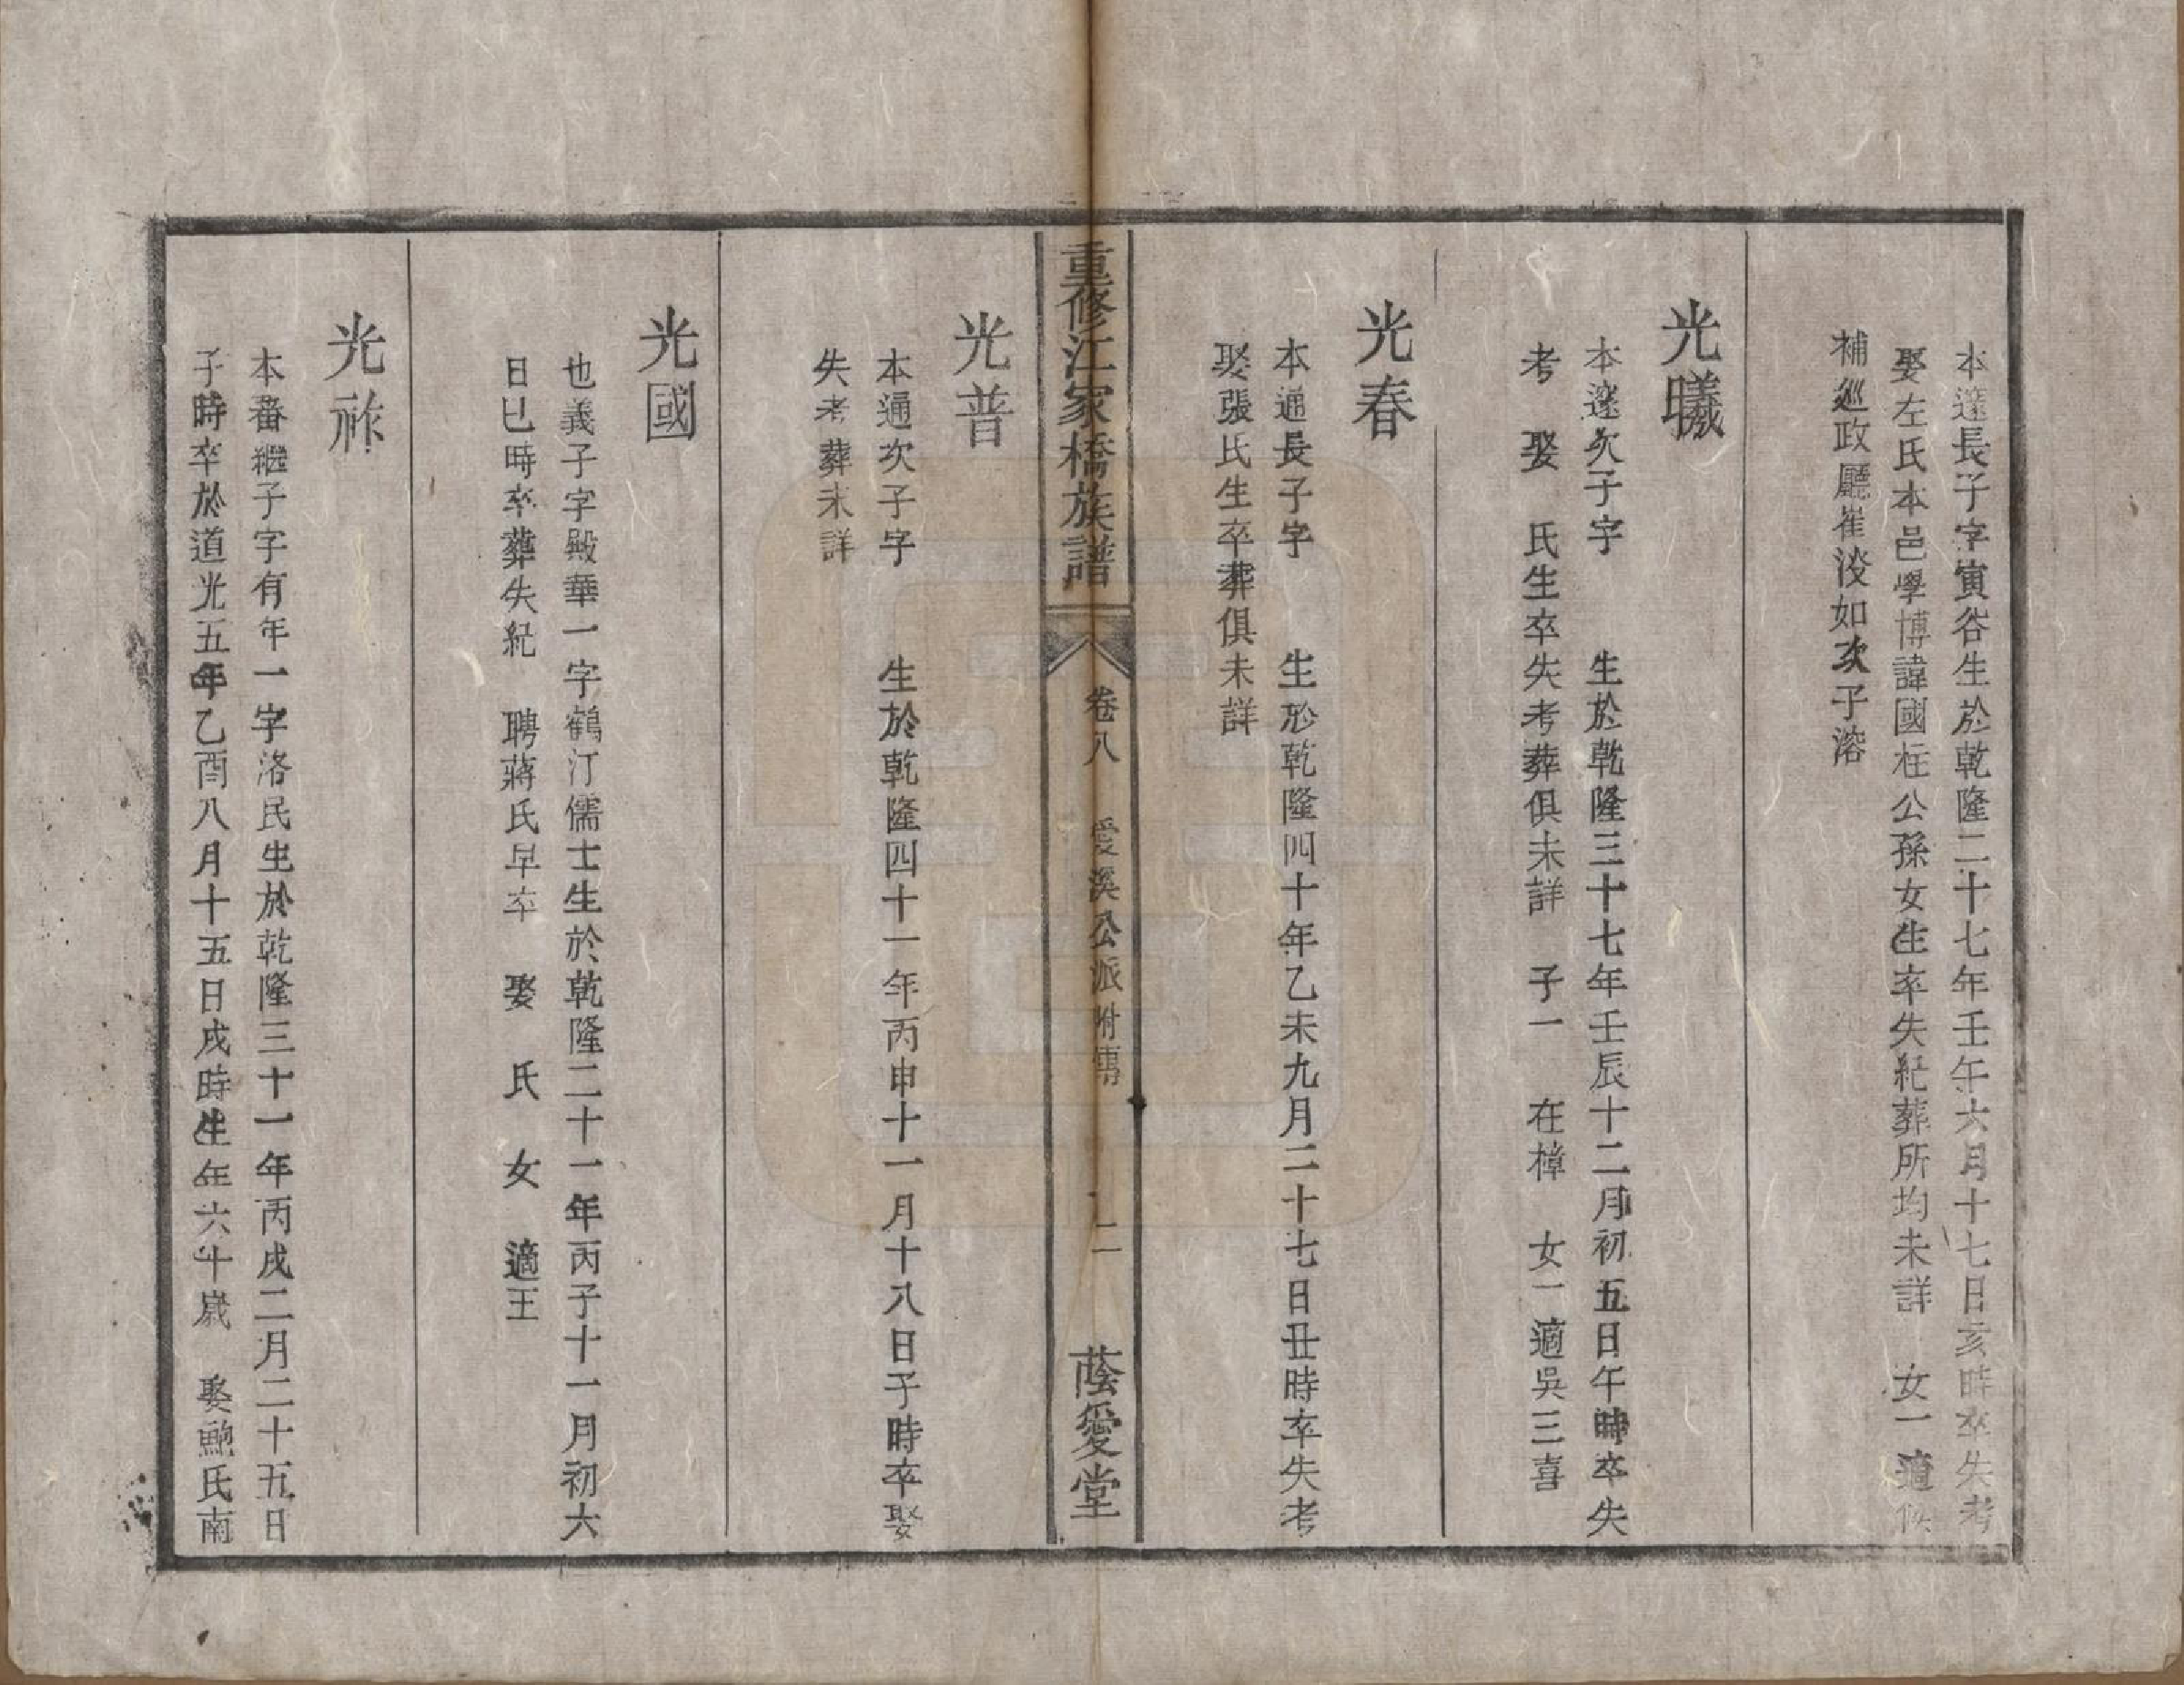 本邃長子字寅谷生於乾隆二十七年壬午六月十七日亥時卒失考
娶左氏本邑學博諱國柱公孫女生卒失紀葬所均未詳　女一適候
補巡政廳崔浚如次子溶
光曦
本邃次子字　　生於乾隆三十七年壬辰十二月初五日午時卒失
考　娶　氏生卒失考葬俱未詳　子一　在樟　女一適吳三喜
光春
本通長子字　　生於乾隆四十年乙未九月二十七日丑時卒失考
娶張氏生卒葬俱未詳
重修江家橋族譜　卷八　愛溪公派附傳　二　蔭愛堂
光普
本通次子字　　生於乾隆四十一年丙申十一月十八日子時卒娶
失考葬未詳
光國
也義子字殿華一字鶴汀儒士生於乾隆二十一年丙子十一月初六
日巳時卒葬失紀　聘蔣氏早卒　娶　氏　女　適王
光祚
本番繼子字有年一字洛民生於乾隆三十一年丙戌二月二十五日
子時卒於道光五年乙酉八月十五日戌時生年六十歲　娶鮑氏南